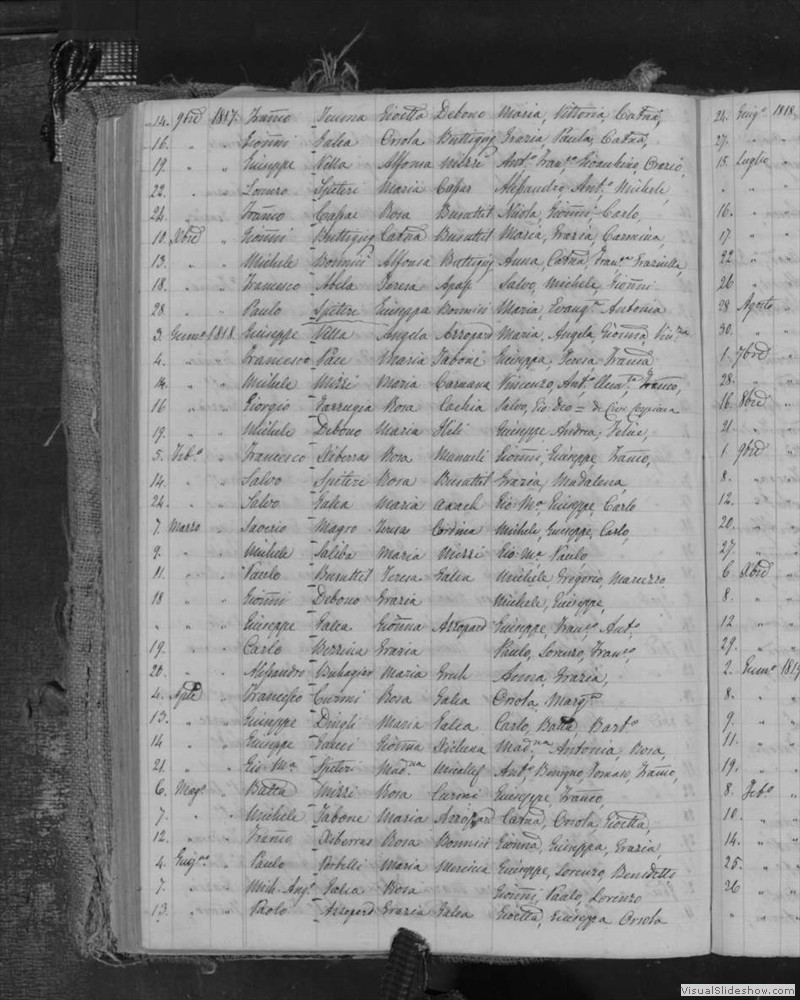 14. 9bre 1817. Franco Teuma Gioetta Debono Maria, Vittoria Catna,
16. " " Gionni Galea Orsola Buttigieg Grazia, Paula, Catna,
19. " " Giuseppe Villa Alfonsa Mizzi Anto, Franco, Gioachino, Orazio,
22. " " Lorenzo Spiteri Maria Capar Alessandro, Anto, Michele,
24. " " Franco Capar Rosa Busuttil Nicola, Gionni, Carlo,
10. Xbre " Gionni Buttigieg Catna Busuttil Maria, Grazia, Carmina,
13. " " Michele Bonnici Alfonsa Buttigieg Anna, Catna, Franca, Graziella,
18. " " Francesco Abela Teresa Apap Salvo, Michele, Gionni
28. " " Paulo Spiteri Giuseppa Bonnici Maria, Evangta, Antonia
3. Genno 1818. Giuseppe Villa Angela Azzopard Maria, Angela, Gionna,
4. " " Francesco Pace Maria Tabone Giuseppa, Teresa, Franca
14. " " Michele Mizzi Maria Caruana Vincenzo, Anto, Franco,
16 " " Giorgio Farrugia Rosa Cachia Salvo, Gio Deo =
19. " " Michele Debono Maria Geli Giuseppe Andrea, Felice,
5. Febo " Francesco Xiberras Rosa Manueli Gionni, Giuseppe, Franco,
14. " " Salvo Spiteri Rosa Busuttil Grazia, Madalena,
24. " " Salvo Galea Maria Axach Gio Ma, Giuseppe, Carlo
7. Marzo " Saverio Magro Teresa Cordina Michele, Giuseppe, Carlo,
9. " " Michele Saliba Maria Mizzi Gio Ma Paulo
11. " " Paulo Busuttil Teresa Galea Michele, Gregorio, Maruzzo
18 " " Gionni Debono Grazia Michele, Giuseppe,
" " " Giuseppe Galea Gionna Azzopard Giuseppe, Franco, Anto,
19. " " Carlo Bezzina Grazia Paulo, Lorenzo, Franco,
20. " " Alessandro Buhagiar Maria Grech Anna, Grazia,
4. Aple " Francesco Curmi Rosa Galea Orsola, Margta
13. " " Giuseppe Dingli Maria Galea Carlo, Batta, Barto
14 " " Giuseppe Gauci Gionna Xicluna Madna, Antonia, Rosa,
21. " " Gio Ma Spiteri Madna Micallef Anto, Benigno, Tomaso, Franco,
6. Mago " Batta Mizzi Rosa Curmi Giuseppe, Franco,
7. " " Michele Tabone Maria Azzopard Catna, Orsola, Gioetta,
12. " " Franco Xiberras Rosa Bonnici Gionna, Giuseppa, Grazia,
4. Giugno " Paulo Portelli Maria Mercieca Giuseppe, Lorenzo, Benedetto,
7. " " Mich. Ango Galea Rosa Gionni, Paulo, Lorenzo
13. " " Paolo Azzopard Grazia Galea Gioetta, Giuseppa Orsola
24. Giugo 1818.
27. "
15. Luglio "
" " "
16. "
17 "
22 "
26 "
28 Agosto "
30. "
1. 7bre "
28. "
16. 8bre "
21. "
1. 9bre "
8. "
12. "
20. "
27. "
6. Xbre "
8. "
12 "
29. "
2. Genno 1819
8. "
9. "
11. "
19. "
8. Febo "
10. "
14. "
25. "
26 "
VisualSlideshow.com